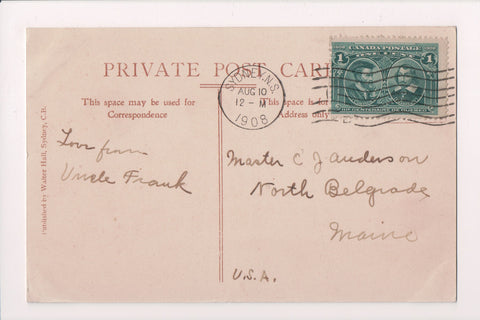 PRIVATE POST CAR
SYDNEY, N.S.
AUG 10
12 - M
1908
CANADA POSTAGE
1 1
This space may be used for
Correspondence
This space is for
Address only
Published by Walter Hall, Sydney, C.B.
Love from
Uncle Frank
Master C J Anderson
North Belgrade
Maine
U.S.A.